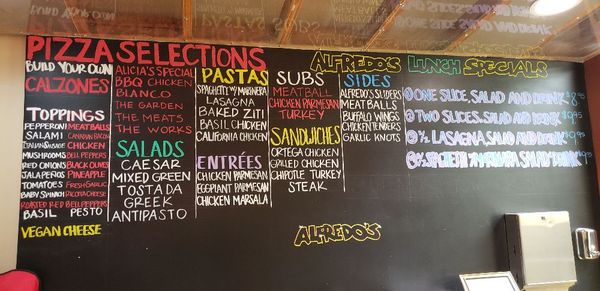 PIZZA SELECTIONS
BUILD YOUR OWN
CALZONES
TOPPINGS
PEPPERONI MEATBALLS
SALAMI CANADIAN BACON
ITALIAN SAUSAGE CHICKEN
MUSHROOMS BELL PEPPERS
RED ONIONS BLACK OLIVES
JALAPEÑOS PINEAPPLE
TOMATOES FRESH GARLIC
BABY SPINACH RICOTTA CHEESE
ROASTED RED BELL PEPPERS
BASIL PESTO
VEGAN CHEESE
ALICIA'S SPECIAL
BBQ CHICKEN
BIANCO
THE GARDEN
THE MEATS
THE WORKS
SALADS
CAESAR
MIXED GREEN
TOSTADA
GREEK
ANTIPASTO
PASTAS
SPAGHETTI W/ MARINARA
LASAGNA
BAKED ZITI
BASIL CHICKEN
CALIFORNIA CHICKEN
ENTRÉES
CHICKEN PARMESAN
EGGPLANT PARMESAN
CHICKEN MARSALA
SUBS
MEATBALL
CHICKEN PARMESAN
TURKEY
SANDWICHES
ORTEGA CHICKEN
GRILLED CHICKEN
CHIPOTLE TURKEY
STEAK
SIDES
ALFREDO'S SLIDERS
MEATBALLS
BUFFALO WINGS
CHICKEN TENDERS
GARLIC KNOTS
ALFREDO'S LUNCH SPECIALS
ONE SLICE, SALAD AND DRINK
TWO SLICES, SALAD AND DRINK
LASAGNA, SALAD AND DRINK
SPAGHETTI MARINARA SALAD DRINK
ALFREDO'S